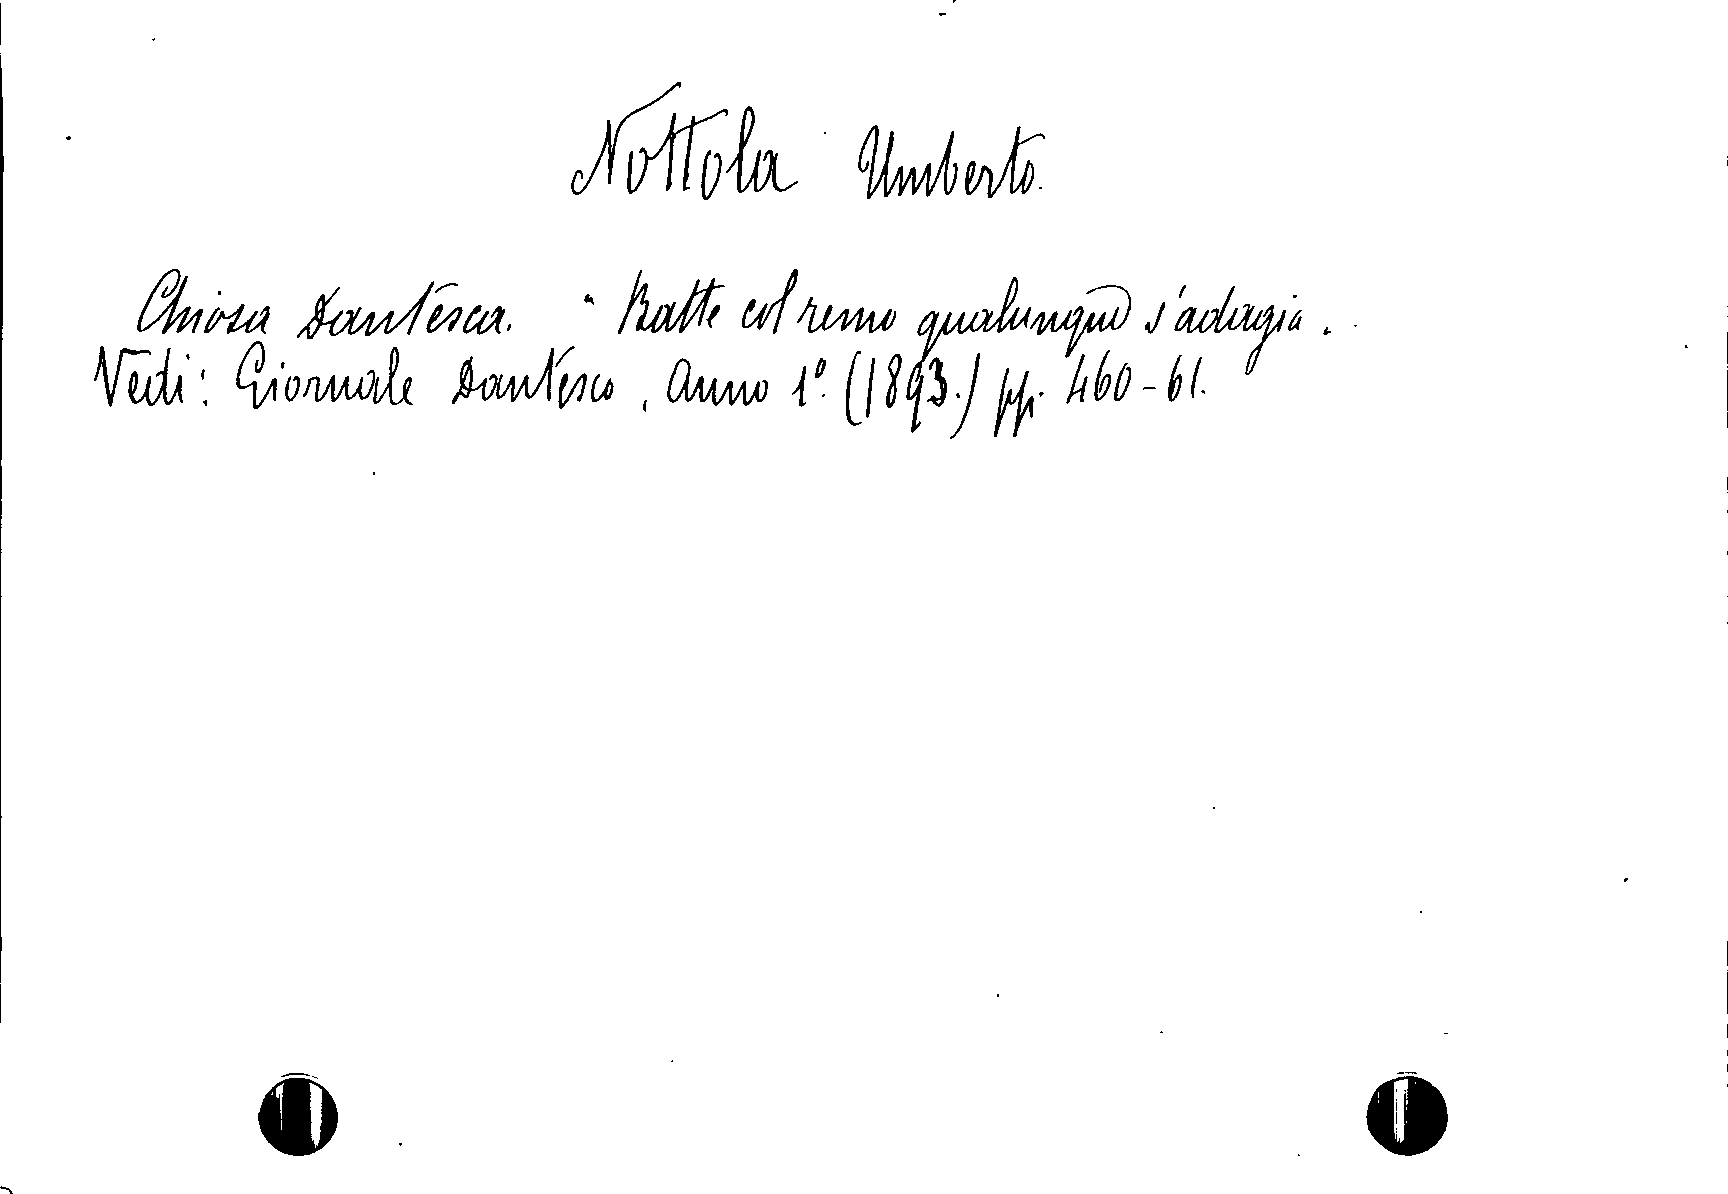 Nottola Umberto.
Chiosa Dantesca. " Batte col remo qualunque s'adagia.
Vedi: Giornale Dantesco, Anno 1º. (1893.) pp. 460-61.